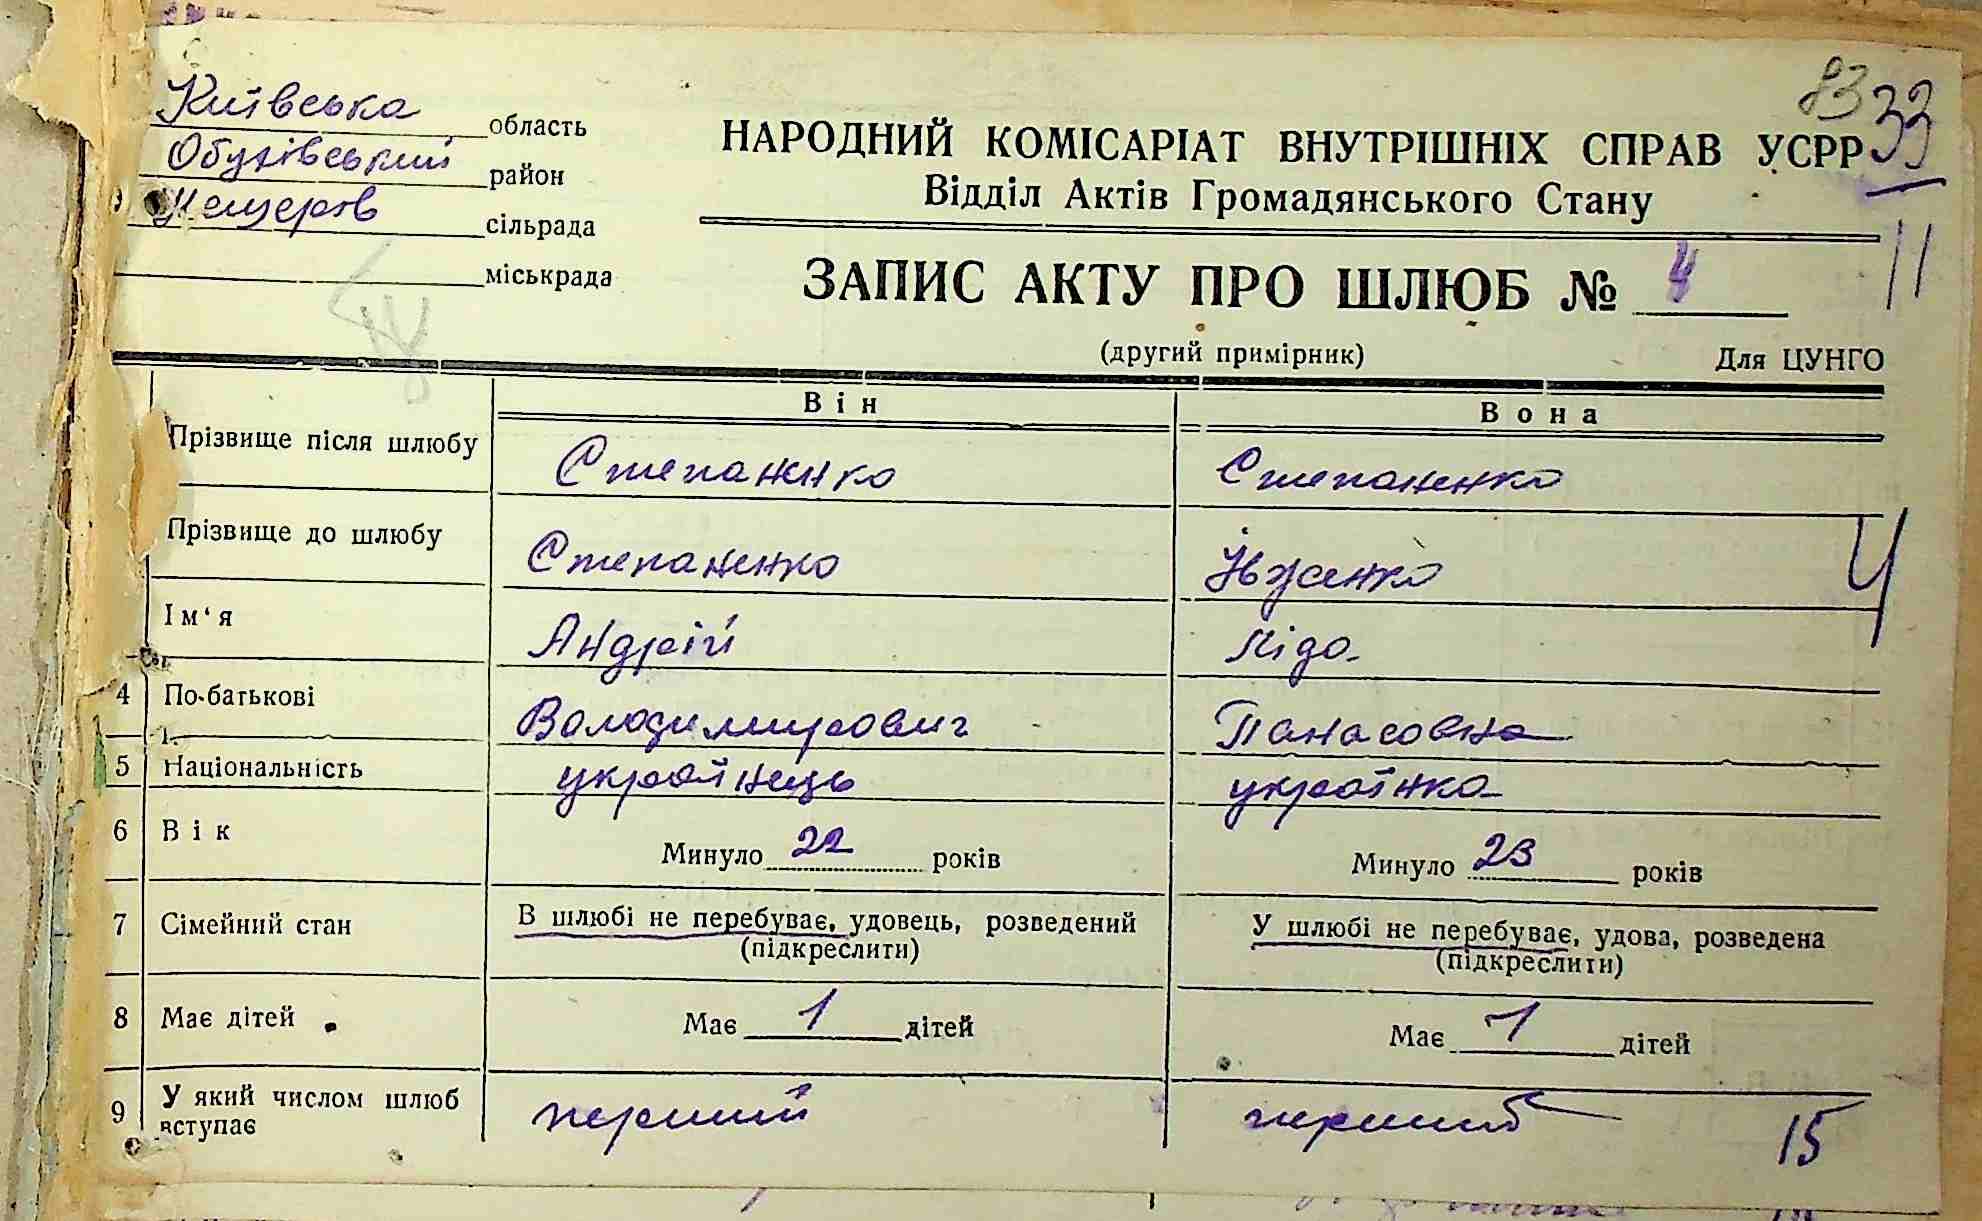 Київська область
Обухівський район
Нещерів сільрада
міськрада
83 33
33
11
НАРОДНИЙ КОМІСАРІАТ ВНУТРІШНІХ СПРАВ УСРР
Відділ Актів Громадянського Стану
ЗАПИС АКТУ ПРО ШЛЮБ № 4
(другий примірник) Для ЦУНГО
Він Вона
Прізвище після шлюбу Степаненко Степаненко
Прізвище до шлюбу Степаненко Івженко
Ім'я Андрій Ліда
4 По-батькові Володимирович Панасовна
5 Національність українець українка
6 Вік Минуло 22 років Минуло 23 років
7 Сімейний стан В шлюбі не перебуває, удовець, розведений У шлюбі не перебуває, удова, розведена
(підкреслити) (підкреслити)
8 Має дітей Має 1 дітей Має 1 дітей
9 У який числом шлюб вступає перший перший
15